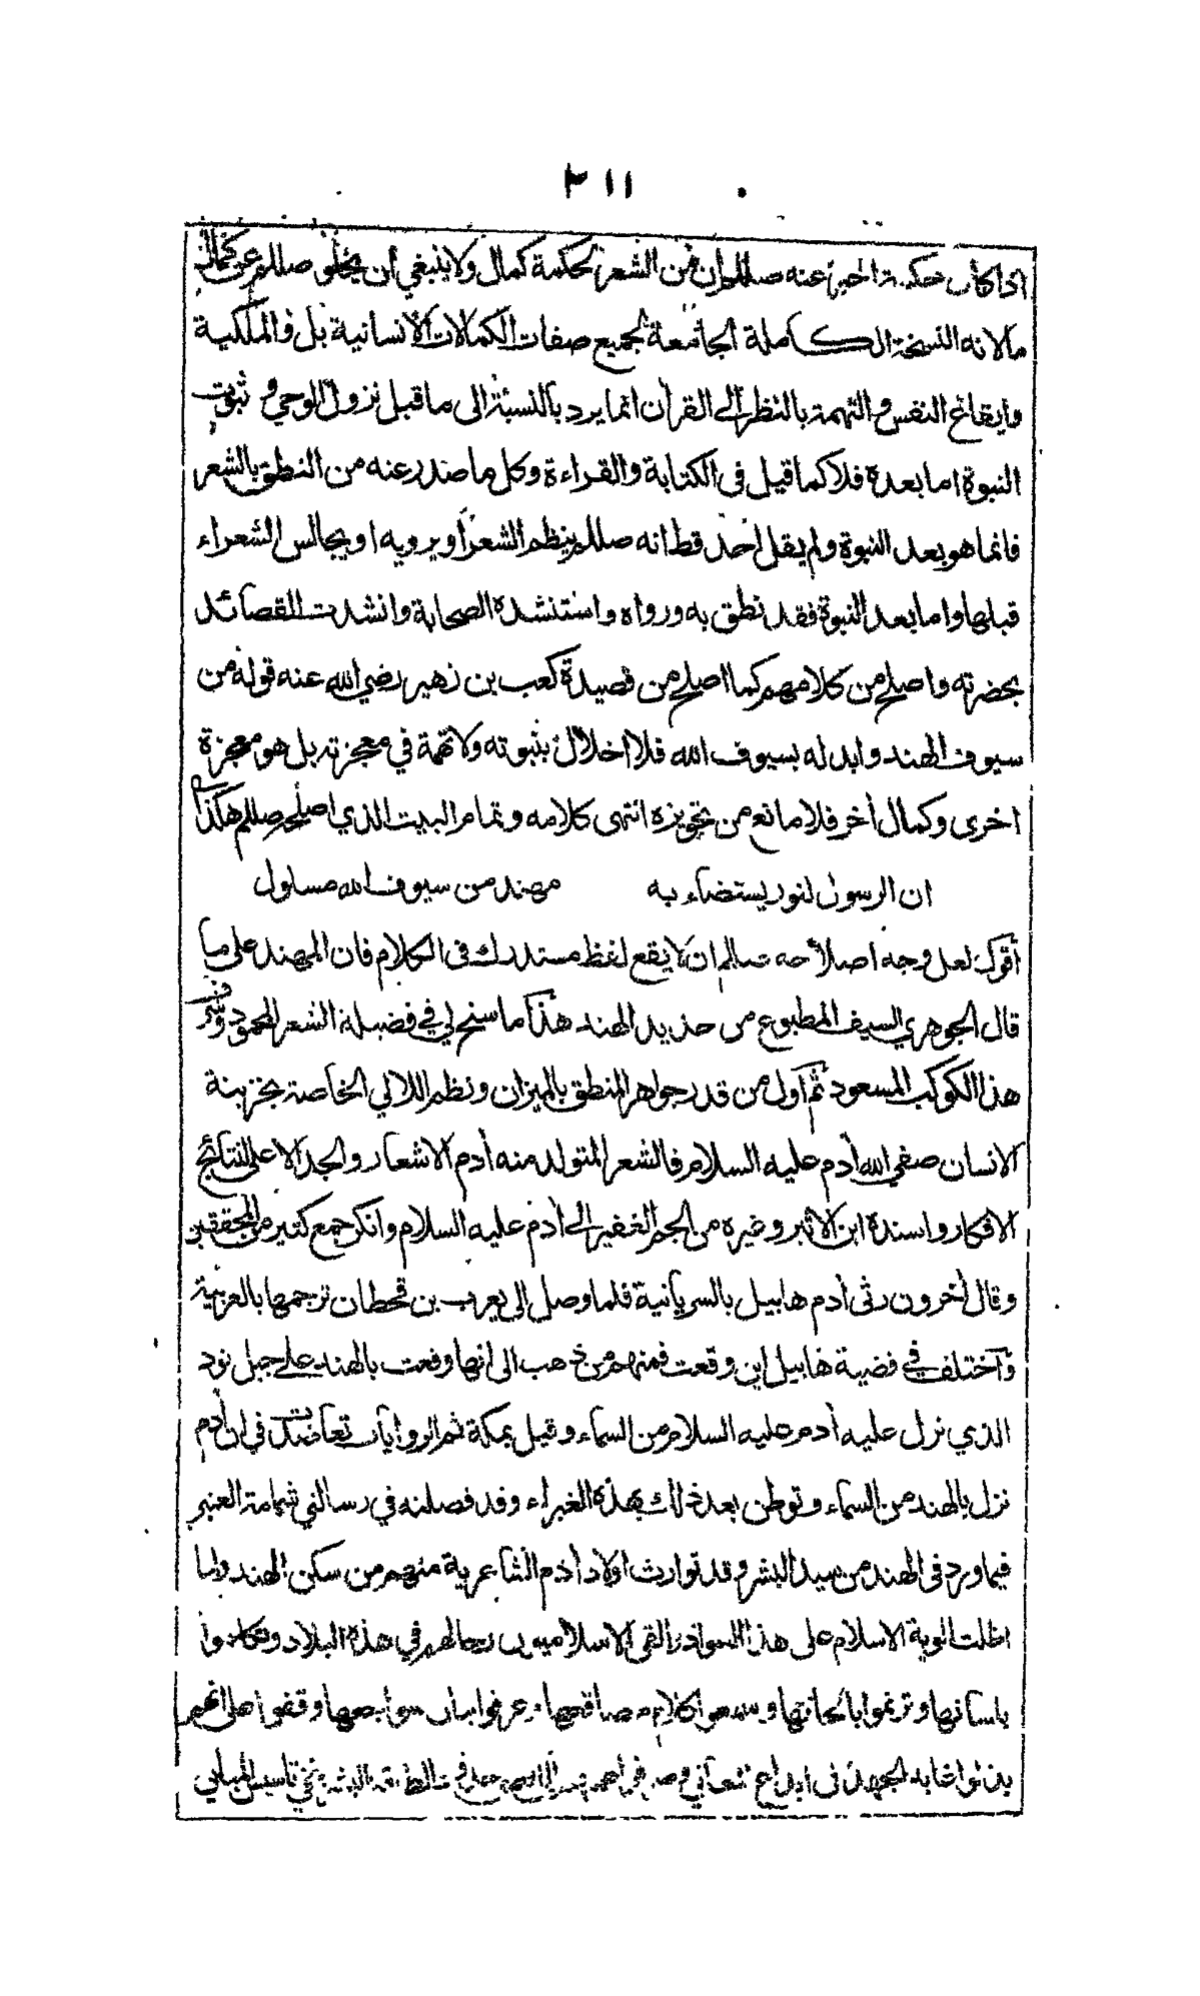 ٢١١
اذا كان حكمة الخبر عنه صللم ان من الشعر لحكمة كمال ولا ينبغي أن يخلو صللم عن كمال
ما لانه النسخة الكاملة الجامعة لجميع صفات الكمالات الأنسانية بل والملكية
وايقاع النفس والتهمة بالنظر الى القرأن انما يرد بالنسبة الى ما قبل نزول الوحي و ثبوت
النبوة اما بعدة فلا كما قيل فى الكتابة والقراءة وكل ما صدر عنه من النطق بالشعر
فانما هو بعد النبوة ولم يقل أحد قط انه صللم ينظم الشعر أو يرويه او يجالس الشعراء
قبلها واما بعد النبوة فقد نطق به ورواه واستنشده الصحابة وانشدت القصائد
بحضرته واصلح من كلامهم كما اصلح من قصيدة كعب بن زهير رضي الله عنه قوله من
سيوف الهند وابدله بسيوف الله فلا اخلال بنبوته ولا تهمة في معجزته بل هو معجزة
اخرى وكمال أخر فلا مانع من تجويزه انتهى كلامه وتمام البيت الذي اصلحه صللم هكذا
ان الرسول لنور يستضاء به مهند من سيوف الله مسلول
أقول لعل وجه اصلاحه صللم ان لا يقع لفظ مستدرك فى الكلام فان المهند على ما
قال الجوهري السيف المطبوع من حديد الهند هذا ما سنح لي في فضيلة الشعر المحمود وشرف
هذا الكوكب المسعود ثم أول من قدر جواهر المنطق بالميزان ونظم اللالي الخاصة بخزينة
الانسان صفي الله أدم عليه السلام فالشعر المتولد منه أدم الاشعار والجد الاعلى لنتائج
الافكار واسنده ابن الاثير وغيره من الجم الغفير الى أدم عليه السلام وانكر جمع كثير من المحققين
وقال أخرون رثى أدم هابيل بالسريانية فلما وصل الى يعرب بن قحطان ترجمها بالعربية
وأختلف في قضية هابيل اين وقعت فمنهم من ذهب الى انها وقعت بالهند على جبل نود
الذي نزل عليه أدم عليه السلام من السماء وقيل بمكة ثم الروايات تعاضدت في ان أدم
نزل بالهند من السماء وتوطن بعد ذلك بهذه الغبراء وقد فصلته في رسالتي شمامة العنبر
فيما ورد فى الهند من سيد البشر وقد توارث اولاد أدم الشاعرية منهم من سكن الهند ولما
اظلت الوية الاسلام على هذا السواد والقى الاسلاميون رحالهم في هذه البلاد وتكلموا
بلسانها وترنموا بالحانها وسمعوا كلام مصاقعها وعرفوا لسان سواجعها وقفوا على انهم
بذلوا غاية الجهد فى ابداع المعاني تاسيس المباني